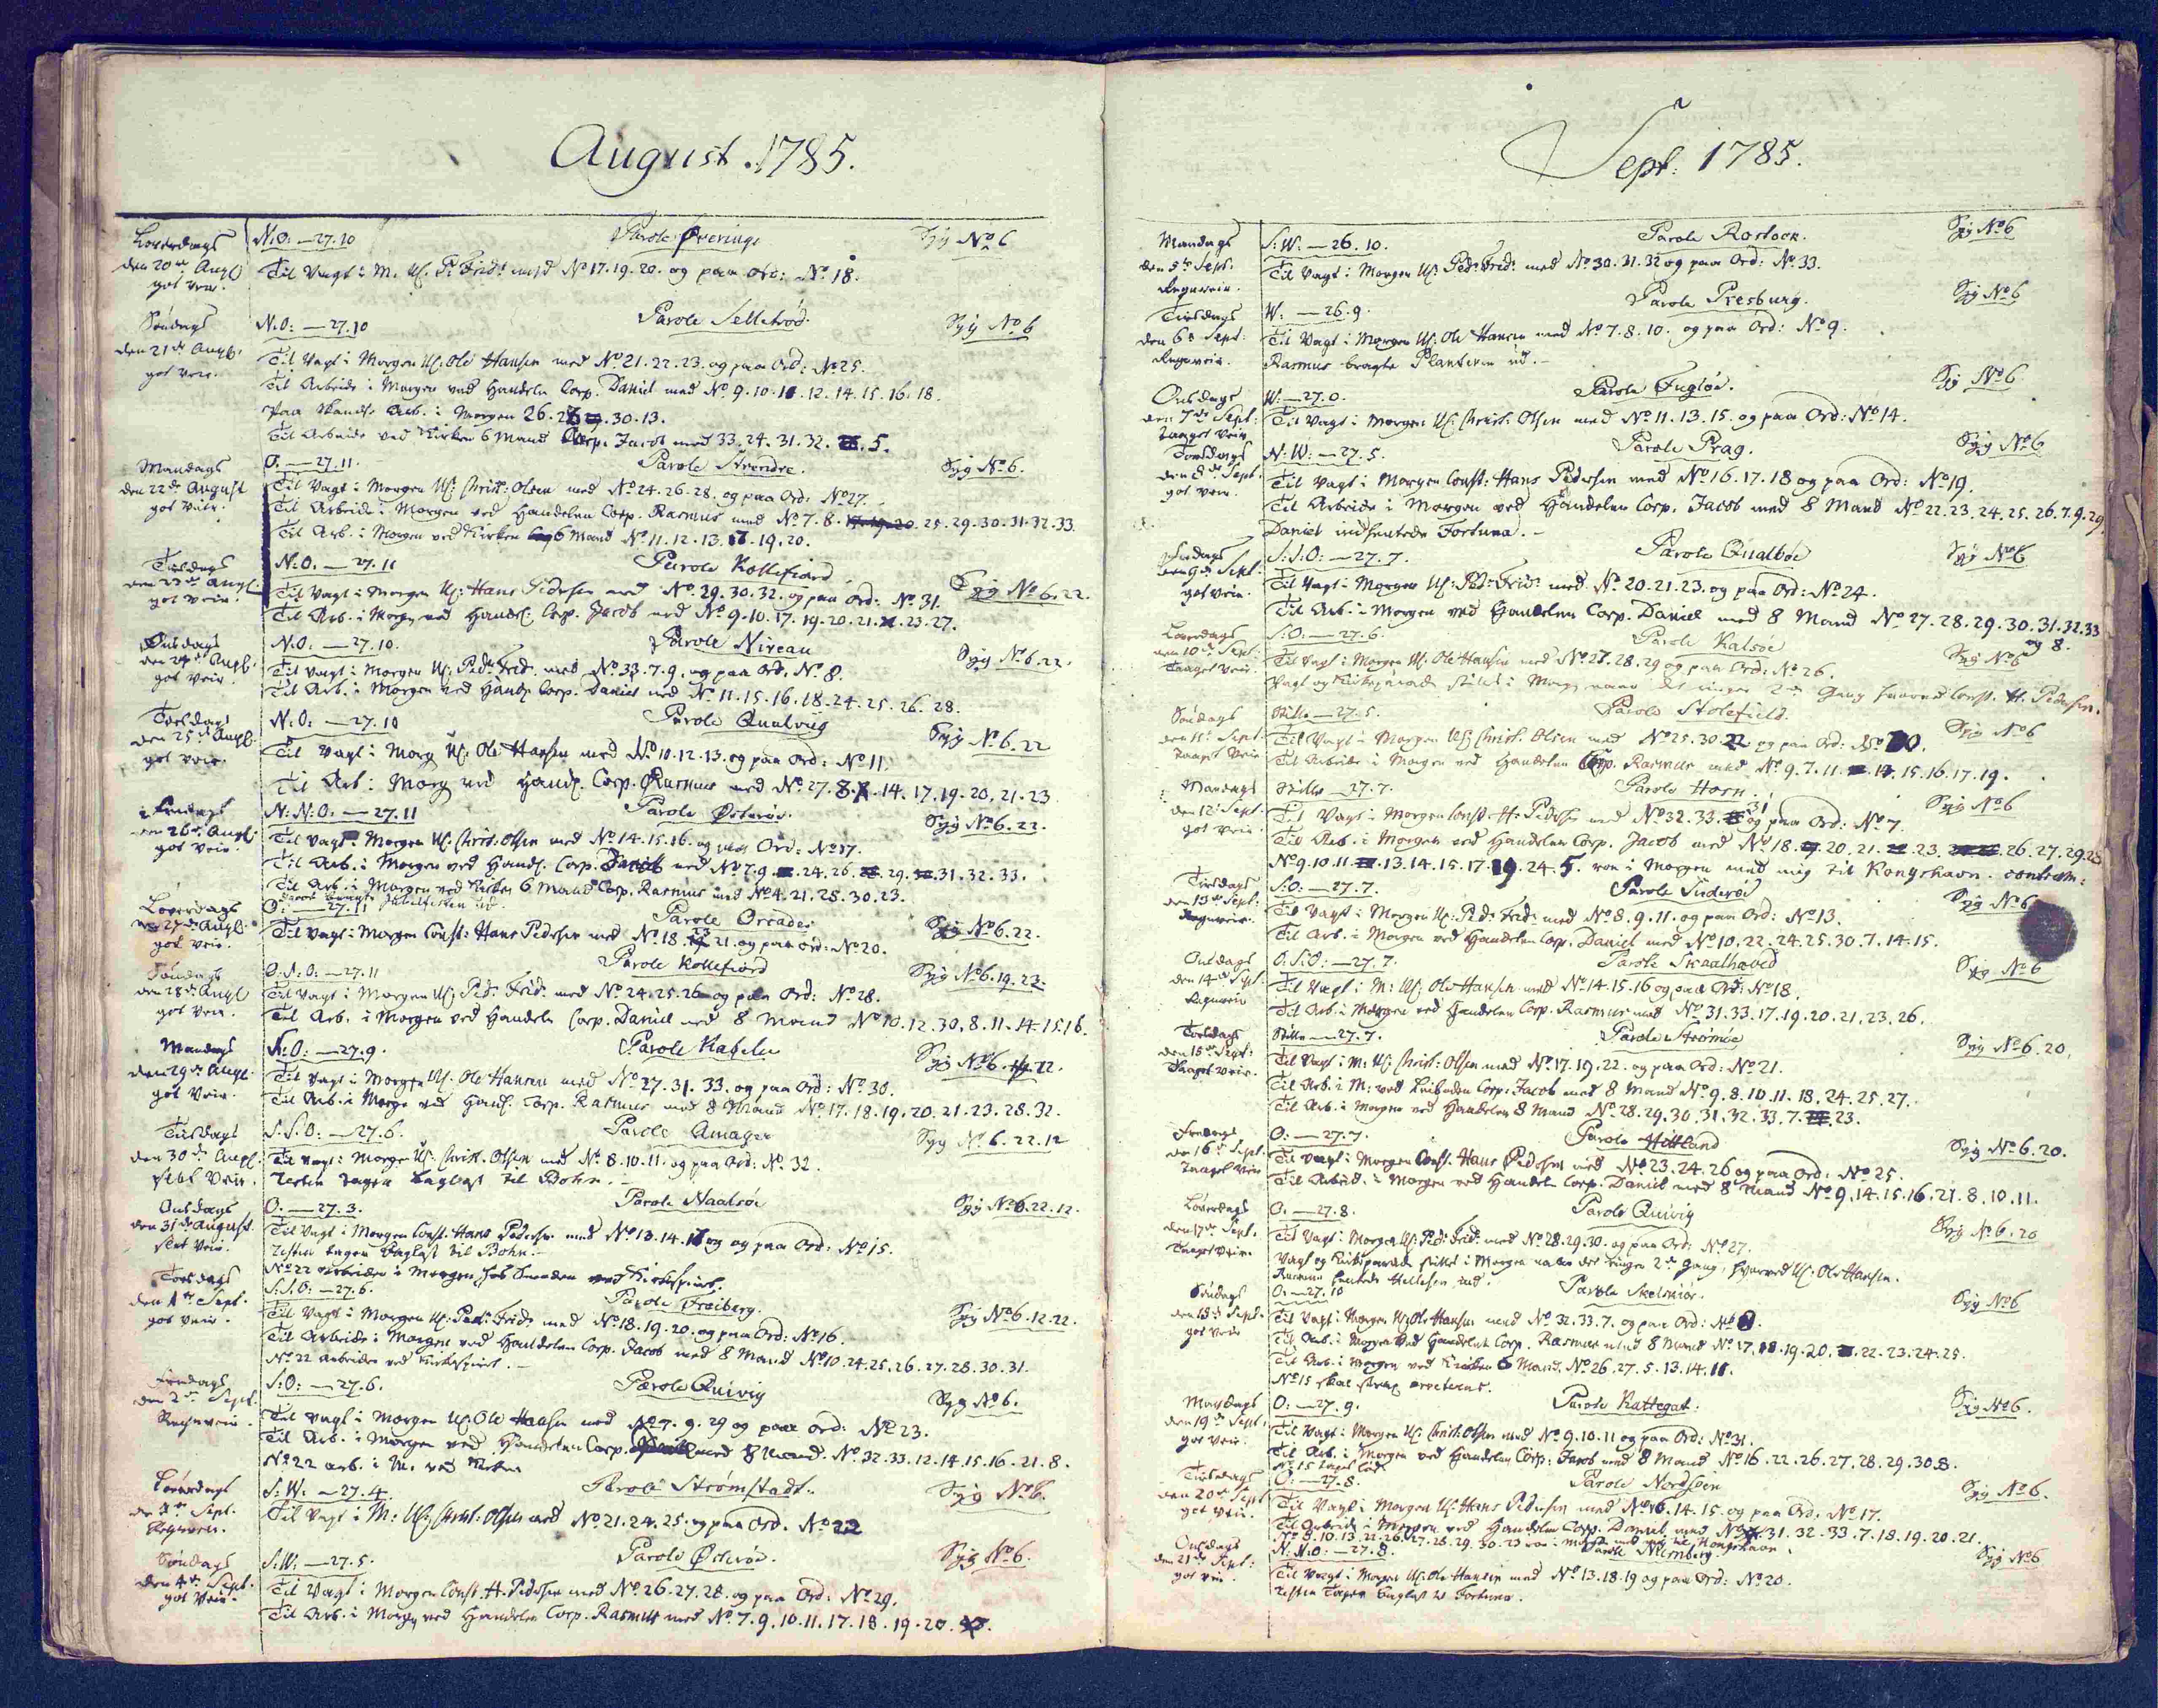 August. 1785.
Løverdags
den 20de Augl
got veir.
N.O: — 27.10
Parole Øveringe
Syg No 6
Til Vagt i M. U: P: Frid: med No 17.19.20. og paa Ord: No 18.
Søndags
den 21de Augl.
got veir.
N.O: — 27.10
Parole Selletrød
Syg No 6
Til Vagt i Morgen U: Ole Hansen med No 21.22.23. og paa Ord: No 25.
Til Arbeide i Morgen ved Handeln Corp. Daniel med No 9.10.11.12.14.15.16.18.
Paa Skands Arb. i Morgen 26. 30.13.
Til Arbeide ved Kirken 6 Mand Corp. Jacob med 33.24.31.32. 5.
Mandags
den 22de August
got veir.
O. — 27.11.
Parole Strendre.
Syg No 6.
Til Vagt i Morgen U: Christ: Olsen med No 24.26.28. og paa Ord: No 27.
Til Arbeide i Morgen ved Handelen Corp. Rasmus med No 7.8. 25.29.30.31.32.33.
Til Arb. i Morgen ved Kirken 6 Mand No 11.12.13.17.19.20.
Tirsdags
den 23de Augl.
got veir.
N.O. — 27.11
Parole Kollefiord
Syg No 6.22.
Til Vagt i Morgen U: Hans Pedersen med No 29.30.32. og paa Ord: No 31.
Til Arb. i Morgen ved Handl: Corp. Jacob med No 9.10.17.19.20.21. 23.27.
Onsdags
den 24de Augl.
got veir.
N.O. — 27.10.
Parole Nireau
Syg No 6.22.
Til Vagt i Morgen U: Ped: Frid: med No 33.7.9. og paa Ord. No 8.
Til Arb. i Morgen ved Handl: Corp. Daniel med No 11.15.16.18.24.25.26.28.
Torsdags
den 25de Augl.
got veir.
N.O. — 27.10
Parole Qualviig
Syg No 6.22
Til Vagt i Morg U: Ole Hansen med No 10.12.13. og paa Ord: No 11.
Til Arb: Morg ved Handl: Corp. Rasmus med No 27.8. 14.17.19.20.21.23
Fredags
den 26de Augl.
got veir.
N:N.O: — 27.11
Parole Østerøe.
Syg No 6.22.
Til Vagt i Morgen U: Christ: Olsen med No 14.15.16. og paa Ord: No 17.
Til Arb. i Morgen ved Handl: Corp. Jacob med No 7.9. 24.26. 29. 31.32.33.
Til Arb. i Morgen ved Kirken 6 Mand Corp. Rasmus med No 4.21.28.30.23.
Løverdags
den 27de Augl.
got veir.
O: — 27.11
Parole Orcades
Syg No 6.22.
Til Vagt i Morgen Const: Hans Pedersen med No 18. 21. og paa Ord: No 20.
Søndags
den 28de Augl
got veir.
O:S:O: — 27.11
Parole Kollefiord
Syg No 6.19.23.
Til Vagt i Morgen U: Ped: Frid: med No 24.25.26 og paa Ord: No 28.
Til Arb. i Morgen ved Handeln Corp. Daniel med 8 Mand No 10.12.30.8.11.14.15.16.
Mandags
den 29de Augl.
got veir.
N:O: — 27.9.
Syg No 6. 22.
Til Vagt i Morgen U: Ole Hansen med No 27.31.33. og paa Ord: No 30.
Til Arb. i Morgen ved Handl: Corp. Rasmus med 8 Mand No 17.18.19.20.21.23.28.32.
Tirsdags
den 30de Augl.
slet veir.
S.S.O: — 27.6.
Parole Amager
Syg No 6.22.12
Til Vagt i Morgen U: Christ. Olsen med No 8.10.11. og paa Ord: No 32.
Resten tagen Baglast til Bohn.
Onsdags
den 31de August
slet veir.
O. — 27.3.
Parole Naalsøe
Syg No 6.22.12.
Til Vagt i Morgen Const. Hans Pedersen med No 13.14. og paa Ord: No 15.
Resten tagen Baglast til Bohn.
No 22 arbeider i Morgen hos Smeden ved Kirkespiret.
Torsdags
den 1te Sept.
got veir.
S.S.O: — 27.6.
Parole Freiberg.
Syg No 6.12.22.
Til Vagt i Morgen U: Ped: Frid: med No 18.19.20. og paa Ord: No 16.
Til Arbeide i Morgen ved Handelen Corp. Jacob med 8 Mand No 10.24.25.26.27.28.30.31.
No 22 arbeider ved Kirkespiret.
Fredags
den 2de Sept.
Regnveir.
S:O: — 27.6.
Parole Quivig
Syg No 6.
Til Vagt i Morgen U: Ole Hansen med No 7.9.29 og paa Ord: No 23.
Til Arb. i Morgen ved Handelen Corp. med 8 Mand. No 32.33.12.14.15.16.21.8.
No 22 arb. i M. ved Kirken
Løverdags
den 3de Sept.
Regnveir.
S:W. — 27.4
Parole Strømstadt.
Syg No 6.
Til Vagt i M: U: Christ: Olsen med No 21.24.25. og paa Ord. No 22
Søndags
den 4de Sept.
got veir.
S:W: — 27.5.
Parole Østerøe.
Syg No 6.
Til Vagt i Morgen Const. H. Pedersen med No 26.27.28. og paa Ord: No 29.
Til Arb. i Morgen ved Handelen Corp. Rasmus med No 7.9.10.11.17.18.19.20.
Sept: 1785.
Mandags
den 5te Sept.
Regnveir.
S:W: — 26.10.
Parole Rostock.
Syg No 6
Til Vagt i Morgen U: Ped: Frid: med No 30.31.32 og paa Ord: No 33.
Tirsdags
den 6te Sept:
Regnveir.
W: — 26.9.
Parole Presburg.
Syg No 6
Til Vagt i Morgen U: Ole Hansen med No 7.8.10. og paa Ord: No 9.
Rasmus bragte Planteren ud.
Onsdags
den 7de Sept:
Taaget veir
W: — 27.0.
Parole Fugløe.
Syg No 6
Til Vagt i Morgen U: Christ: Olsen med No 11.13.15. og paa Ord: No 14.
Torsdags
den 8de Sept.
got veir.
N:W: — 27.5.
Parole Prag.
Syg No 6
Til Vagt i Morgen Const: Hans Pedersen med No 16.17.18 og paa Ord: No 19.
Til Arbeide i Morgen ved Handelen Corp. Jacob med 8 Mand No 22.23.24.25.26.7.9.29
Daniel indhentede Fortuna.
Fredags
den 9de Sept.
got veir.
S:S:O: — 27.7.
Parole Qualbøe
Syg No 6
Til Vagt i Morgen U: Ped: Frid: med No 20.21.23. og paa Ord: No 24.
Til Arb. i Morgen ved Handelen Corp. Daniel med 8 Mand No 27.28.29.30.31.32.33
og 8.
Løverdags
den 10de Sept.
Taaget veir.
S:O: — 27.6.
Parole Kalsøe
Syg No 6
Til Vagt i Morgen U: Ole Hansen med No 27.28.29 og paa Ord: No 26.
Vagt og Kirkeparade stilles i Morgen naar det ringer 2de Gang hvorved Const. H. Pedersen.
Søndags
den 11te Sept.
Taaget Veir
Stille — 27.5.
Parole Stolefield.
Syg No 6
Til Vagt i Morgen U: Christ. Olsen med No 25.30.22 og paa Ord: No 10.
Til Arbeide i Morgen ved Handelen Corp. Rasmus med No 9.7.11. 14.15.16.17.19.
Mandags
den 12te Sept.
got veir.
Stille — 27.7.
Parole Horn.
Syg No 6
Til Vagt i Morgen Const. H. Pedersen med No 32.33.31 og paa Ord: No 7.
Til Arb. i Morgen ved Handelen Corp. Jacob med No 18. 20.21. 23. 26.27.29.25
No 9.10.11. 13.14.15.17.19.24.5. roe i Morgen med mig til Kongshavn.
Tirsdags
den 13de Sept.
Regnveir.
S:O: — 27.7.
Parole Suderøe
Syg No 6
Til Vagt i Morgen U: Ped: Frid: med No 8.9.11. og paa Ord: No 13.
Til Arb. i Morgen ved Handelen Corp. Daniel med No 10.22.24.25.30.7.14.15.
Onsdags
den 14de Sept.
Regnveir
O:S:O: — 27.7.
Parole Skaalhoved
Syg No 6
Til Vagt i M: U: Ole Hansen med No 14.15.16 og paa Ord: No 18.
Til Arb. i Morgen ved Handelen Corp. Rasmus med No 31.33.17.19.20.21.23.26.
Torsdags
den 15de Sept:
Taaget veir.
Stille — 27.7.
Parole Strømøe
Syg No 6.20.
Til Vagt i M: U: Christ: Olsen med No 17.19.22. og paa Ord: No 21.
Til Arb. i M: ved Corp. Jacob med 8 Mand No 9.8.10.11.18.24.25.27.
Til Arb. i Morgen ved Handelen 8 Mand No 28.29.30.31.32.33.7. 23.
Fredags
den 16de Sept.
Taaget veir
O: — 27.7.
Parole Hittland
Syg No 6.20.
Til Vagt i Morgen Const. Hans Pedersen med No 23.24.26 og paa Ord: No 25.
Til Arbeid. i Morgen ved Handeln Corp. Daniel med 8 Mand No 9.14.15.16.21.8.10.11.
Løverdags
den 17de Sept.
Taaget veir.
O. — 27.8.
Parole Quivig
Syg No 6.20
Til Vagt i Morgen U: Ped: Frid: med No 28.29.30. og paa Ord: No 27.
Vagt og Kirkeparade stilles i Morgen naar det ringer 2de Gang, hvorved U: Ole Hansen.
Rasmus hentede Hellesen ind.
Søndags
den 18de Sept.
got veir
O. — 27.10
Parole Skelnæs.
Syg No 6
Til Vagt i Morgen U: Ole Hansen med No 32.33.7. og paa Ord: No 8.
Til Arb. i Morgen ved Handelen Corp. Rasmus med 8 Mand No 17.18.19.20. 22.23.24.25.
Til Arb. i Morgen ved Kirken 6 Mand. No 26.27.5.13.14.11.
No 15 skal strax arresteres.
Mandags
den 19de Sept.
got veir.
O: — 27.9.
Parole Kattegat.
Syg No 6.
Til Vagt i Morgen U: Christ: Olsen med No 9.10.11 og paa Ord: No 31.
Til Arb. i Morgen ved Handelen Corp: Jacob med 8 Mand No 16.22.26.27.28.29.30.8.
Tirsdags
den 20de Sept
got veir.
O: — 27.8.
Parole Nordsøen
Syg No 6.
Til Vagt i Morgen U: Hans Pedersen med No 16.14.15. og paa Ord. No 17.
Til Arbeide i Morgen ved Handelen Corp. Daniel med No 31.32.33.7.18.19.20.21.
Onsdags
den 21de Sept:
got veir
N:N:O: — 27.8.
Parole Nürnberg.
Syg No 6
Til Vagt i Morgen U: Ole Hansen med No 13.18.19 og paa Ord: No 20.
Resten Tagen Baglast til Fortuna.